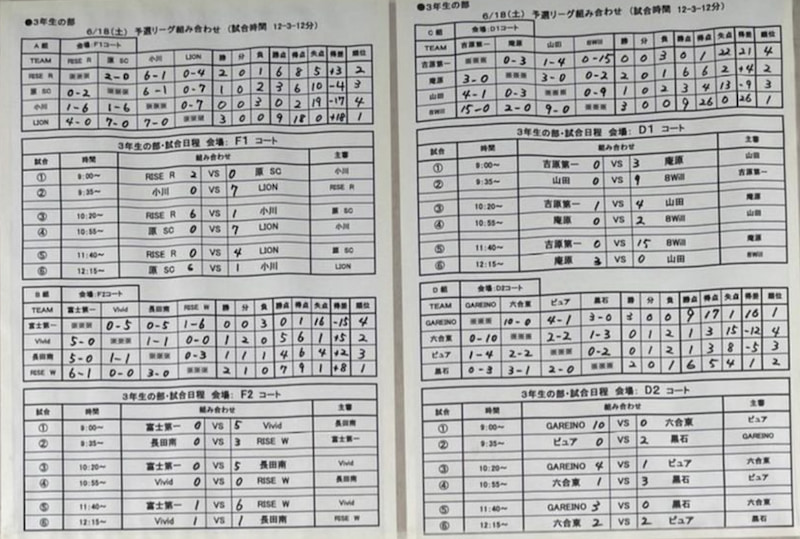 ●3年生の部
6/18(土) 予選リーグ組み合わせ (試合時間 12-3-12分)
A 組 会場:F1コート
TEAM RISE R 原 SC 小川 LION 勝 分 負 勝点 得点 失点 得差 順位
RISE R ※※※ 2-0 6-1 0-4 2 0 1 6 8 5 +3 2
原 SC 0-2 ※※※ 6-1 0-7 1 0 2 3 6 10 -4 3
小川 1-6 1-6 ※※※ 0-7 0 0 3 0 2 19 -17 4
LION 4-0 7-0 7-0 ※※※ 3 0 0 9 18 0 +18 1
3年生の部・試合日程 会場: F1 コート
試合 時間 組み合わせ 主審
① 9:00~ RISE R 2 VS 0 原 SC 小川
② 9:35~ 小川 0 VS 7 LION RISE R
③ 10:20~ RISE R 6 VS 1 小川 原 SC
④ 10:55~ 原 SC 0 VS 7 LION 小川
⑤ 11:40~ RISE R 0 VS 4 LION 原 SC
⑥ 12:15~ 原 SC 6 VS 1 小川 LION
B 組 会場:F2コート
TEAM 富士第一 Vivid 長田南 RISE W 勝 分 負 勝点 得点 失点 得差 順位
富士第一 ※※※ 0-5 0-5 1-6 0 0 3 0 1 16 -15 4
Vivid 5-0 ※※※ 1-1 0-0 1 2 0 5 6 1 +5 2
長田南 5-0 1-1 ※※※ 0-3 1 1 1 4 6 4 +2 3
RISE W 6-1 0-0 3-0 ※※※ 2 1 0 7 9 1 +8 1
3年生の部・試合日程 会場: F2 コート
試合 時間 組み合わせ 主審
① 9:00~ 富士第一 0 VS 5 Vivid 長田南
② 9:35~ 長田南 0 VS 3 RISE W 富士第一
③ 10:20~ 富士第一 0 VS 5 長田南 Vivid
④ 10:55~ Vivid 0 VS 0 RISE W 長田南
⑤ 11:40~ 富士第一 1 VS 6 RISE W Vivid
⑥ 12:15~ Vivid 1 VS 1 長田南 RISE W
●3年生の部
6/18(土) 予選リーグ組み合わせ (試合時間 12-3-12分)
C 組 会場:D1コート
TEAM 吉原第一 庵原 山田 BWill 勝 分 負 勝点 得点 失点 得差 順位
吉原第一 ※※※ 0-3 1-4 0-15 0 0 3 0 1 22 21 4
庵原 3-0 ※※※ 3-0 0-2 2 0 1 6 6 2 +4 2
山田 4-1 0-3 ※※※ 0-9 1 0 2 3 4 13 -9 3
BWill 15-0 2-0 9-0 ※※※ 3 0 0 9 26 0 26 1
3年生の部・試合日程 会場: D1 コート
試合 時間 組み合わせ 主審
① 9:00~ 吉原第一 0 VS 3 庵原 山田
② 9:35~ 山田 0 VS 9 BWill 吉原第一
③ 10:20~ 吉原第一 1 VS 4 山田 庵原
④ 10:55~ 庵原 0 VS 2 BWill 山田
⑤ 11:40~ 吉原第一 0 VS 15 BWill 庵原
⑥ 12:15~ 庵原 3 VS 0 山田 BWill
D 組 会場:D2コート
TEAM GAREINO 六合東 ピュア 黒石 勝 分 負 勝点 得点 失点 得差 順位
GAREINO ※※※ 10-0 4-1 3-0 3 0 0 9 17 1 16 1
六合東 0-10 ※※※ 2-2 1-3 0 1 2 1 3 15 -12 4
ピュア 1-4 2-2 ※※※ 0-2 0 1 2 1 3 8 -5 3
黒石 0-3 3-1 2-0 ※※※ 2 0 1 6 5 4 1 2
3年生の部・試合日程 会場: D2 コート
試合 時間 組み合わせ 主審
① 9:00~ GAREINO 10 VS 0 六合東 ピュア
② 9:35~ ピュア 0 VS 2 黒石 GAREINO
③ 10:20~ GAREINO 4 VS 1 ピュア 六合東
④ 10:55~ 六合東 1 VS 3 黒石 ピュア
⑤ 11:40~ GAREINO 3 VS 0 黒石 六合東
⑥ 12:15~ 六合東 2 VS 2 ピュア 黒石